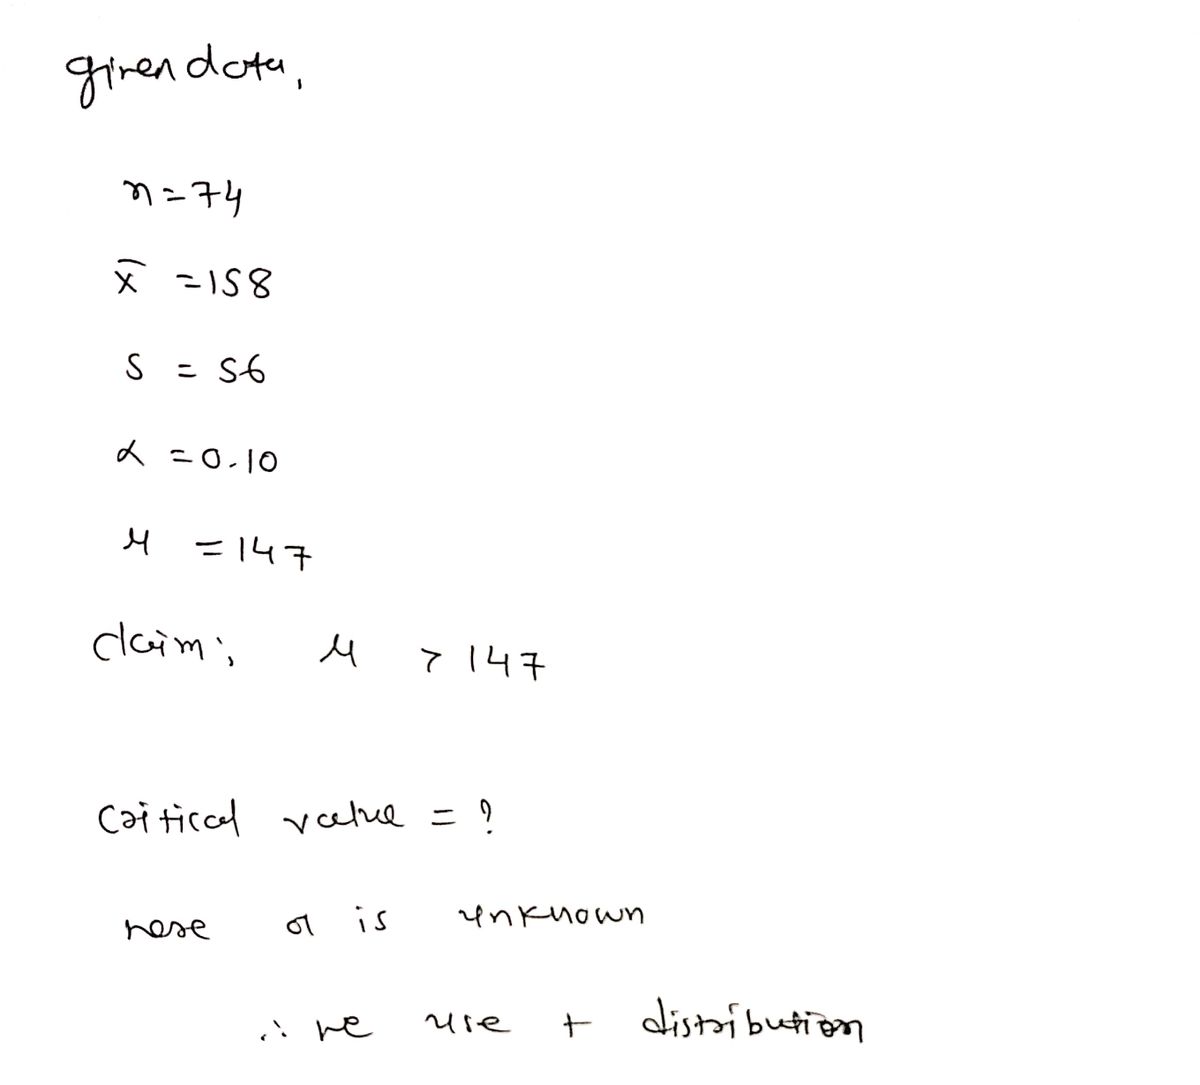 given data,
n = 74
x̄ = 158
s = 56
α = 0.10
μ = 147
claim; μ > 147
critical value = ?
here σ is unknown
∴ we use t distribution